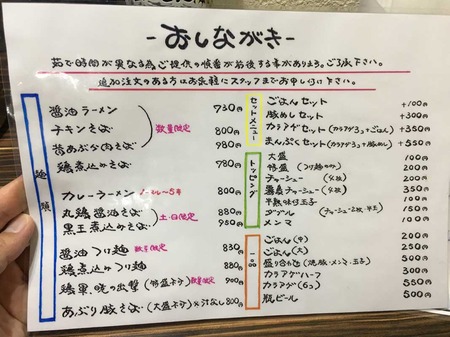 -おしながき-
茹で時間が異なる為ご提供の順番が前後する事があります。ご了承下さい。
追加注文のある方はお気軽にスタッフまでお申し付け下さい。
麺類
醤油ラーメン 730円
チキンそば 800円
昔あぶら肉そば 980円
数量限定
鶏煮込みそば 780円
カレーラーメン 800円
丸鶏醤油そば 880円
黒王煮込みそば 950円
土・日限定
醤油つけ麺 数量限定 830円
鶏煮込みつけ麺 850円
鶏軍、暁の出撃 (特盛ネタ) 数量限定 900円
あぶり豚そば (大盛ネタ) ※汁なし 800円
セットメニュー
ごはんセット +100円
豚めしセット +300円
カラアゲセット (カラアゲ3ヶ+ごはん) +350円
まんぷくセット (豚めし+カラアゲ3ヶ) +550円
トッピング
大盛 100円
特盛 (つけ麺のみ) 200円
チャーシュー (4枚) 200円
蕎麦チャーシュー (4枚) 350円
半熟味付玉子 100円
ダブル (チャーシュー2枚・半玉) 150円
メンマ 100円
一品
ごはん (中) 100円
ごはん (大) 200円
盛り合わせ 500円
カラアゲハーフ 300円
カラアゲ 550円
瓶ビール 500円